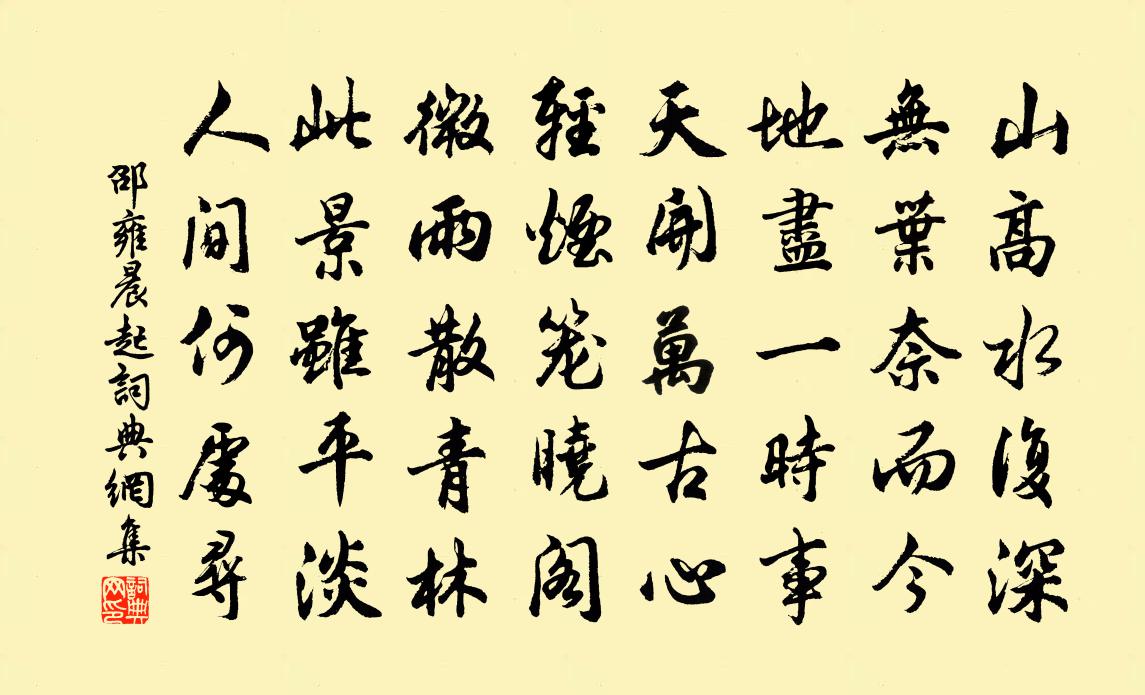 山高水復深
無葉奈而今
地盡一時事
天開萬古心
輕煙籠曉閣
微雨散青林
此景雖平淡
人間何處尋
邵雍晨起詞典網集
詞典網印